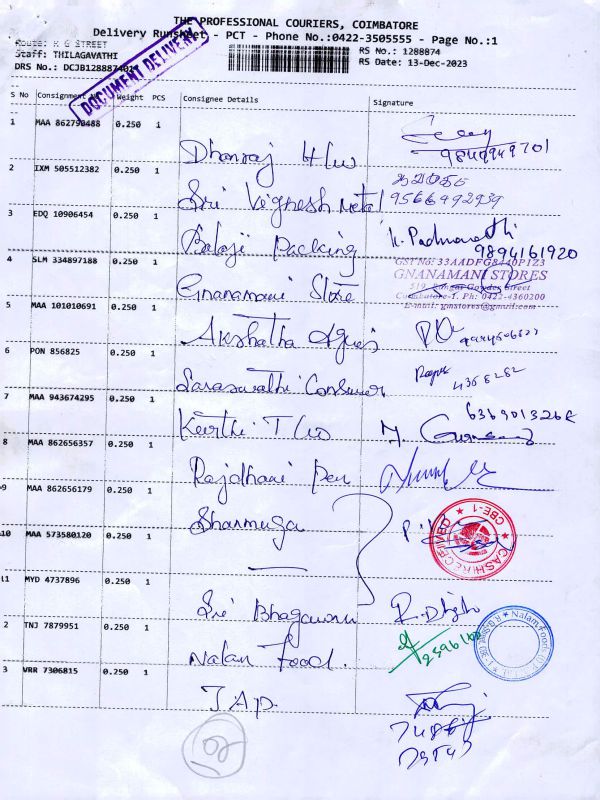 THE PROFESSIONAL COURIERS, COIMBATORE
Delivery Runsheet - PCT - Phone No.:0422-3505555 - Page No.:1
Route: R G STREET
Staff: THILAGAVATHI
RS No.: 1288874
DRS No.: DCJB1288874014
RS Date: 13-Dec-2023
DOCUMENT DELIVERY
S No Consignment No Weight PCS Consignee Details Signature
1 MAA 862790488 0.250 1
Dhanraj H/w
2 IXM 505512382 0.250 1
Sri Vignesh Metal 9566992939
3 EDQ 10906454 0.250 1
Balaji Packing K. Padmavathi
9894161920
4 SLM 334897188 0.250 1
GST No: 33AADFG8440P1Z3
GNANAMANI STORES
519, Rangai Gowder Street
Coimbatore-1. Ph: 0422-4360200
E-mail: gmstores@gmail.com
Gnanamani Store
5 MAA 101010691 0.250 1
Akshatha Agnes
6 PON 856825 0.250 1
Saraswathi Consumer
7 MAA 943674295 0.250 1
Keerthi T
8 MAA 862656357 0.250 1
Rajdhani Pen
9 MAA 862656179 0.250 1
Shanmuga
CASH RECEIVED
CBE-1
10 MAA 573580120 0.250 1
11 MYD 4737896 0.250 1
Sri Bhagawan
2 TNJ 7879951 0.250 1
Nalan Food.
3 VRR 7306815 0.250 1
JAP